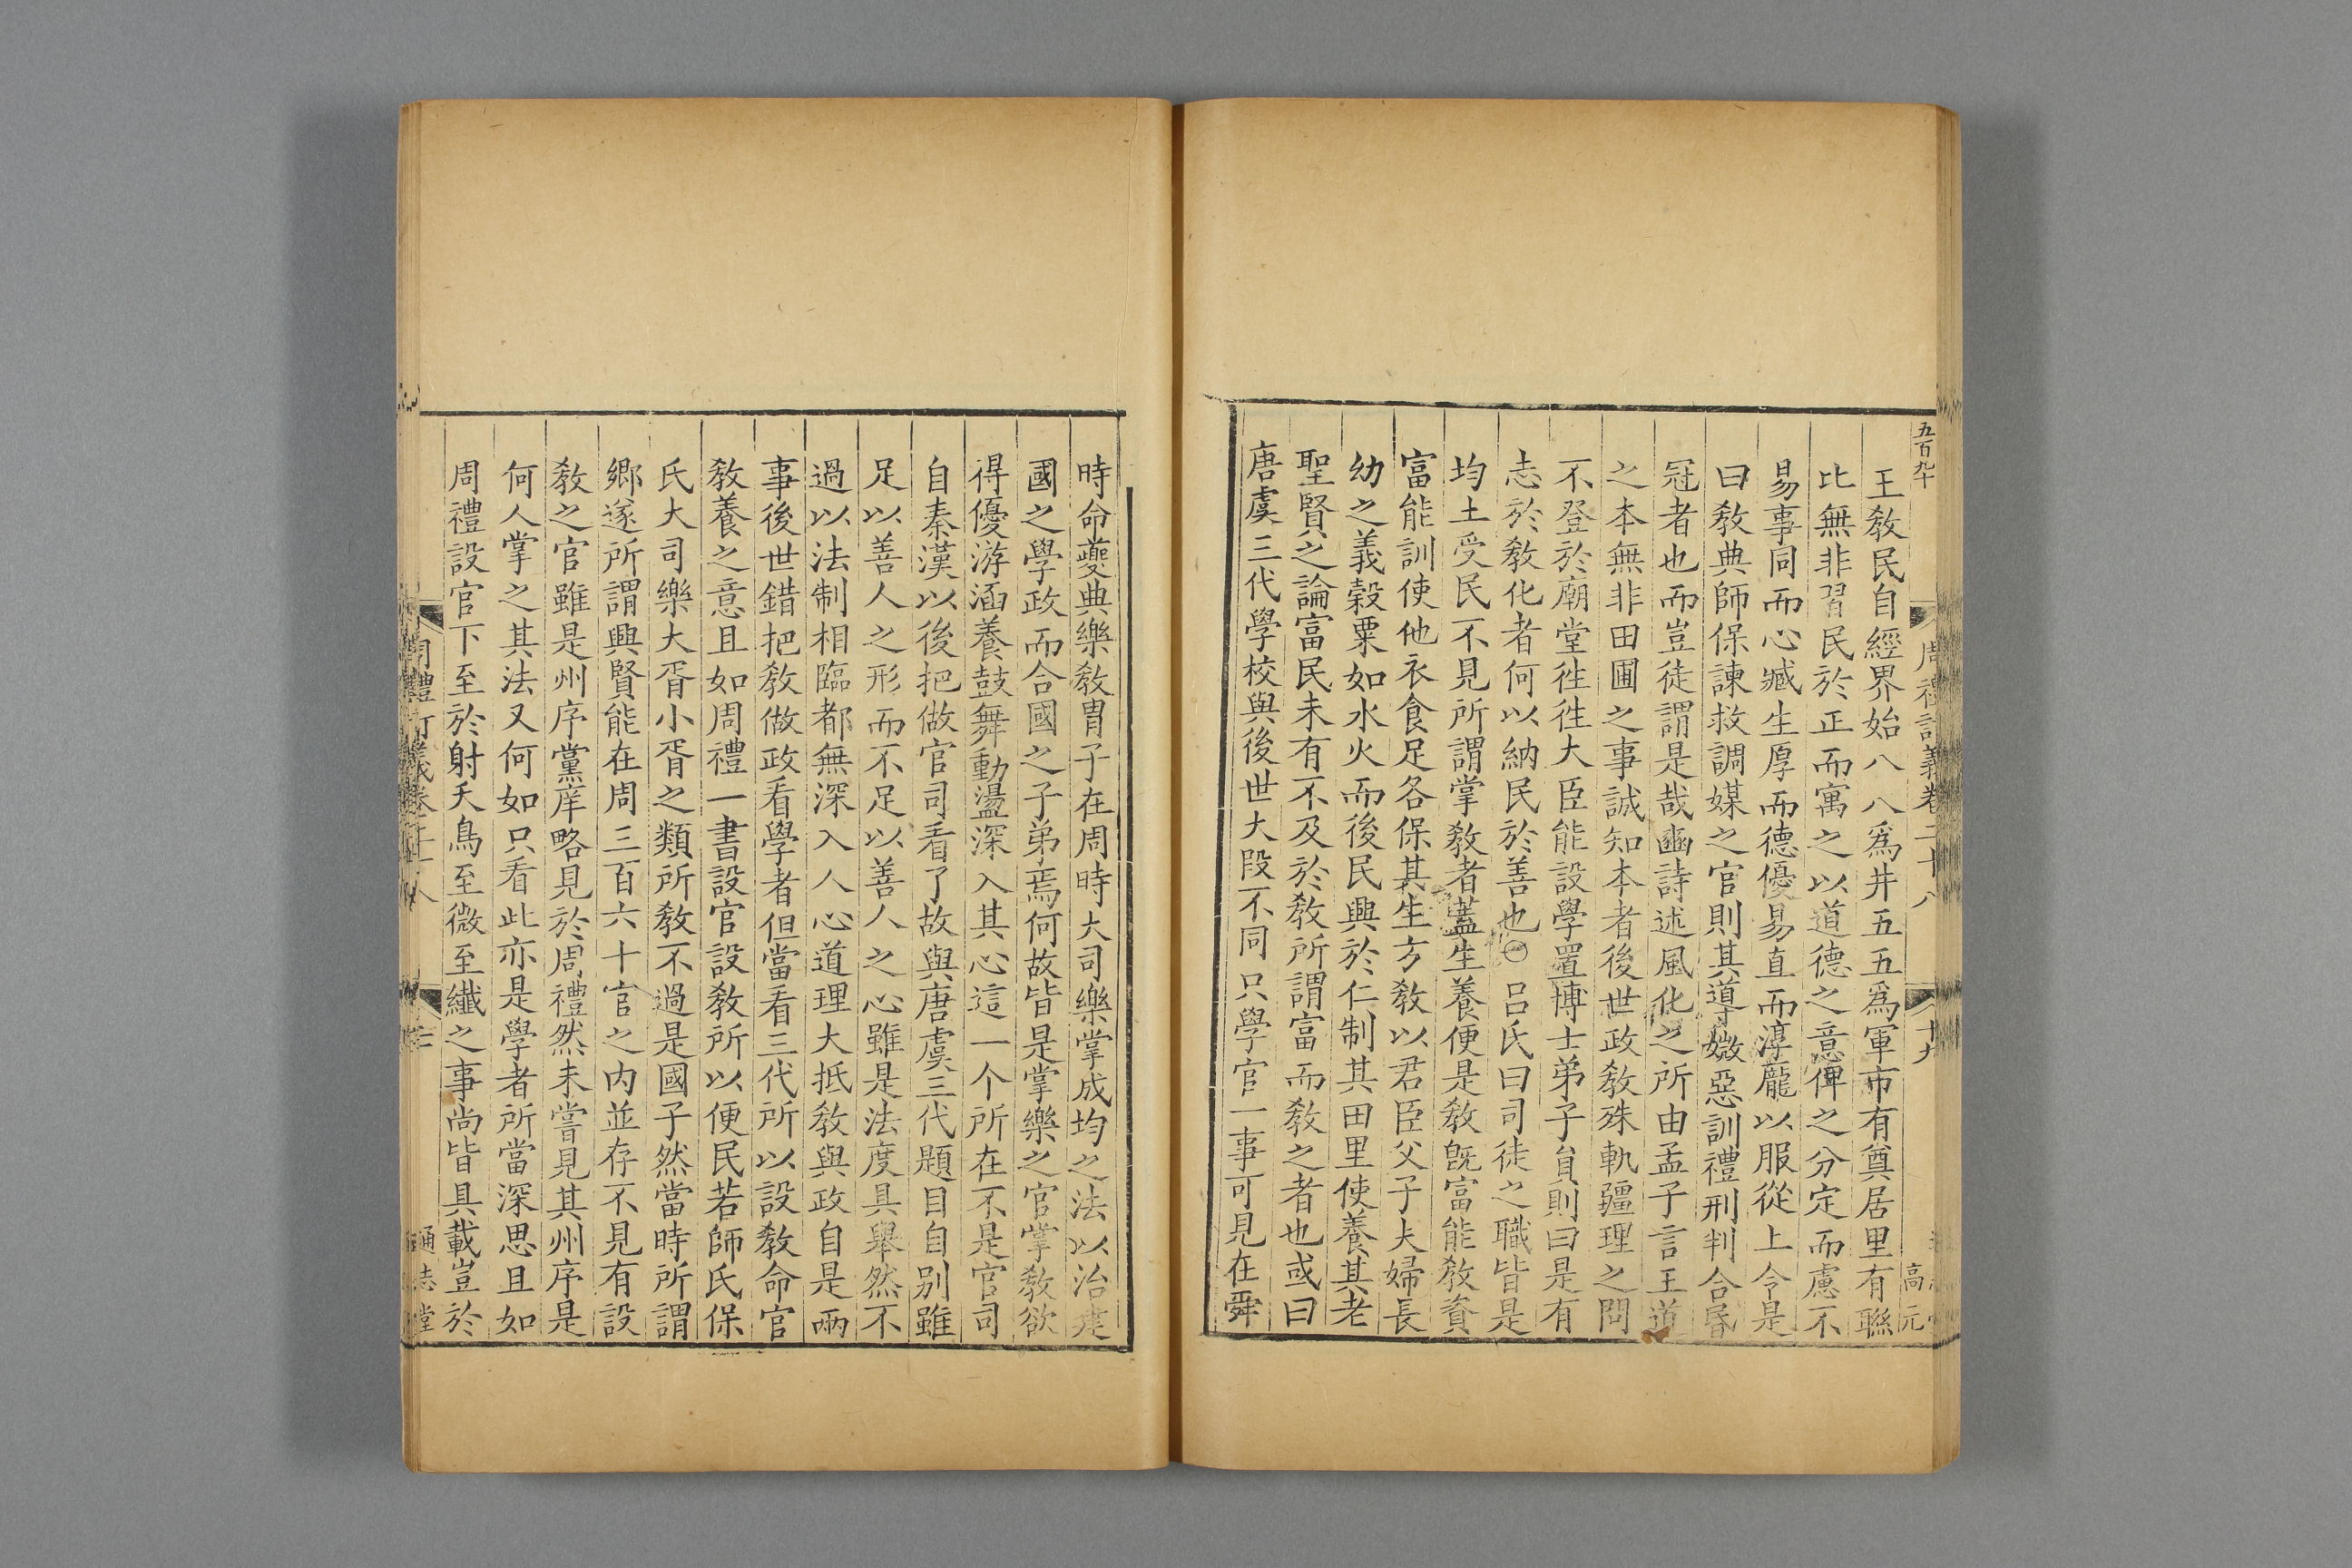 五百九十
周禮訂義卷二十八
十九
高元
王敎民自經界始八八爲井五五爲軍市有奠居里有聮
比無非習民於正而寓之以道德之意俾之分定而慮不
易事同而心臧生厚而德優易直而淳龐以服從上令是
曰敎典師保諫救調媒之官則其導媺惡訓禮刑判合昬
冠者也而豈徒謂是哉豳詩述風化之所由孟子言王道
之本無非田圃之事誠知本者後世政敎殊軌疆理之問
不登於廟堂徃徃大臣能設學置博士弟子員則曰是有
志於敎化者何以納民於善也〇呂氏曰司徒之職皆是
均土受民不見所謂掌敎者蓋生養便是敎旣富能敎資
富能訓使他衣食足各保其生方敎以君臣父子夫婦長
幼之義穀粟如水火而後民興於仁制其田里使養其老
聖賢之論富民未有不及於敎所謂富而敎之者也或曰
唐虞三代學校與後世大段不同只學官一事可見在舜
時命夔典樂敎胄子在周時大司樂掌成均之法以治建
國之學政而合國之子弟焉何故皆是掌樂之官掌敎欲
得優游涵養鼓舞動盪深入其心這一个所在不是官司
自秦漢以後把做官司看了故與唐虞三代題目自别雖
足以善人之形而不足以善人之心雖是法度具舉然不
過以法制相臨都無深入人心道理大抵敎與政自是兩
事後世錯把敎做政看學者但當看三代所以設敎命官
敎養之意且如周禮一書設官設敎所以便民若師氏保
氏大司樂大胥小胥之類所敎不過是國子然當時所謂
鄉遂所謂興賢能在周三百六十官之内並存不見有設
敎之官雖是州序黨庠略見於周禮然未嘗見其州序是
何人掌之其法又何如只看此亦是學者所當深思且如
周禮設官下至於射夭鳥至微至纎之事尚皆具載豈於
周禮訂義卷二十八
通志堂